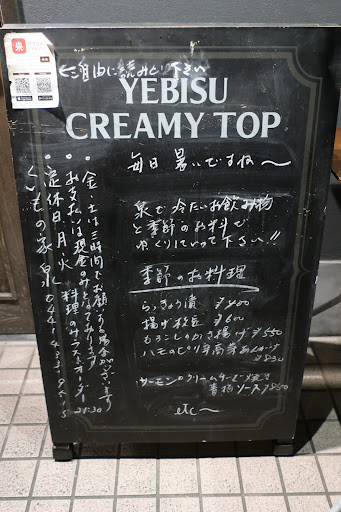 泉
ご自由に読みとり下さい
YEBISU
CREAMY TOP
毎日暑いですね〜
泉で冷たいお飲み物
と季節のお料理で
ゆっくりしていって下さい!!
季節のお料理
らっきょう漬 ¥400
揚げ枝豆 ¥600
もろこしかき揚げ ¥550
¥830
サーモンのクリームチーズ焼き
青梅ソース ¥850
etc〜
金・土は二時間でお願いする場合がございます
お支払いは現金のみとなっております
定休日 月・火 料理のラストオーダー 21:30
くいもの家 泉